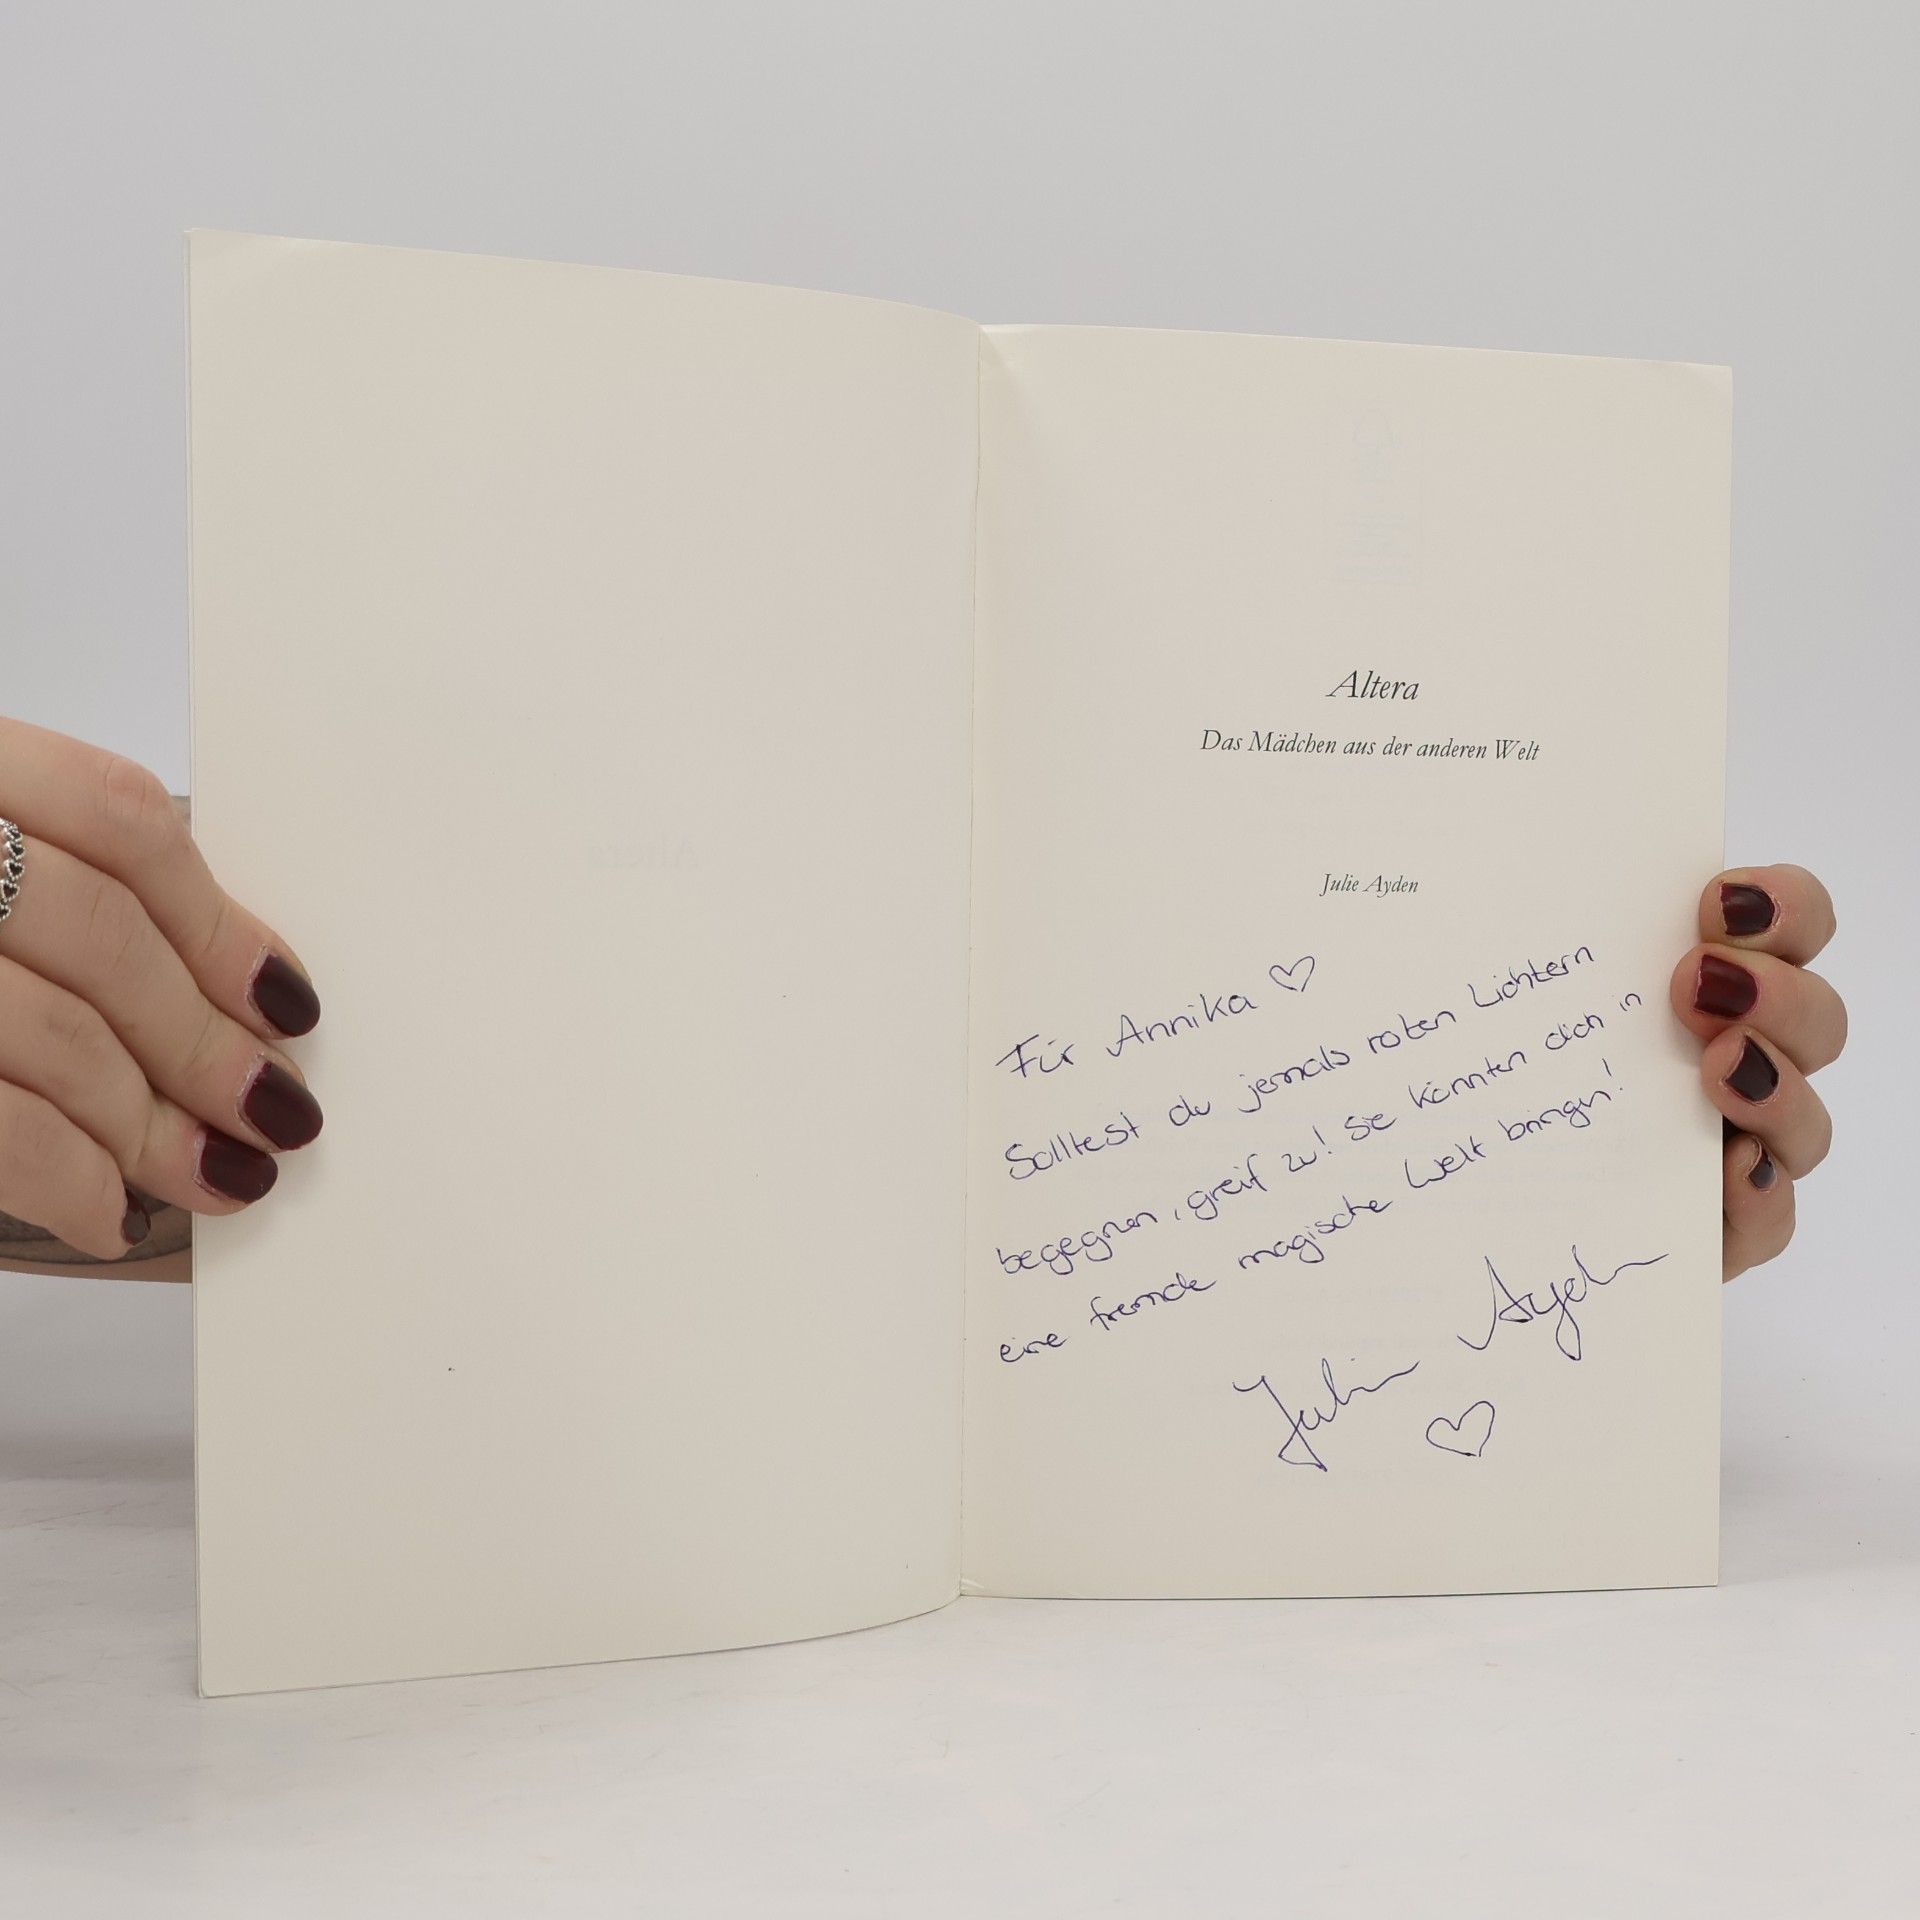 Altera
Das Mädchen aus der anderen Welt
Julie Ayden
Für Annika ♡
Solltest du jemals roten Lichtern
begegnen, greif zu! Sie könnten dich in
eine fremde magische Welt bringen!
Julie Ayden
♡